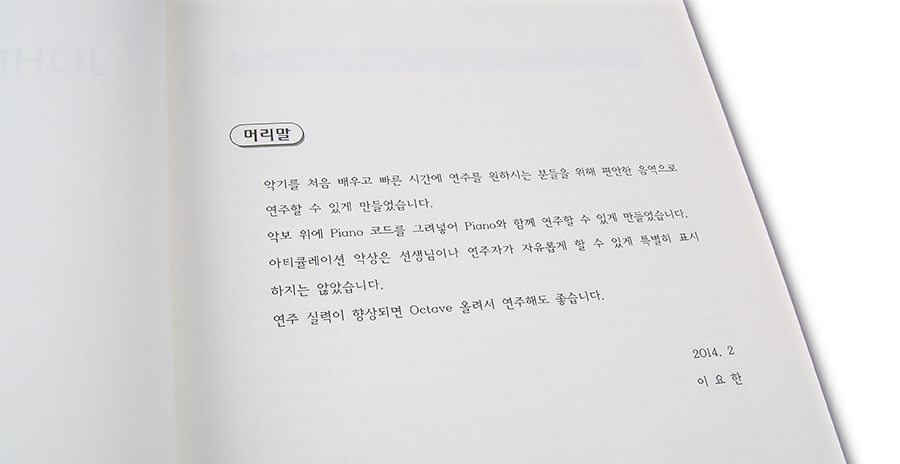 JOH
머리말
악기를 처음 배우고 빠른 시간에 연주를 원하시는 분들을 위해 편안한 음역으로
연주할 수 있게 만들었습니다.
악보 위에 Piano 코드를 그려넣어 Piano와 함께 연주할 수 있게 만들었습니다.
아티큘레이션 악상은 선생님이나 연주자가 자유롭게 할 수 있게 특별히 표시
하지는 않았습니다.
연주 실력이 향상되면 Octave 올려서 연주해도 좋습니다.
2014. 2
이 요 한